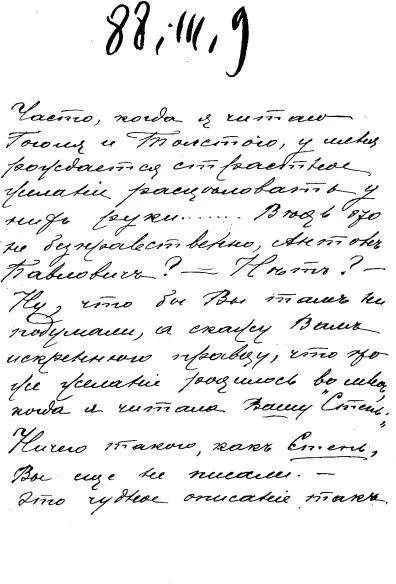 88, III, 9
Часто, когда я читаю
Гоголя и Толстого, у меня
рождается страстное
желаніе расцѣловать у
нихъ руки...... Вѣдь это
не безнравственно, Антонъ
Павловичъ? — Нѣтъ? —
Ну, что бы Вы тамъ ни
подумали, а скажу Вамъ
искреннюю правду, что это
же желаніе родилось во мнѣ,
когда я читала Вашу "Степь."
Ничего такого, какъ Степь,
Вы еще не писали. —
Это чудное описаніе такъ